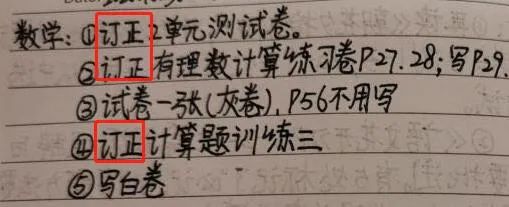 数学:①订正2单元测试卷。
②订正有理数计算练习卷P27.28;写P29.
③试卷一张(灰卷),P56不用写
④订正计算题训练三
⑤写白卷